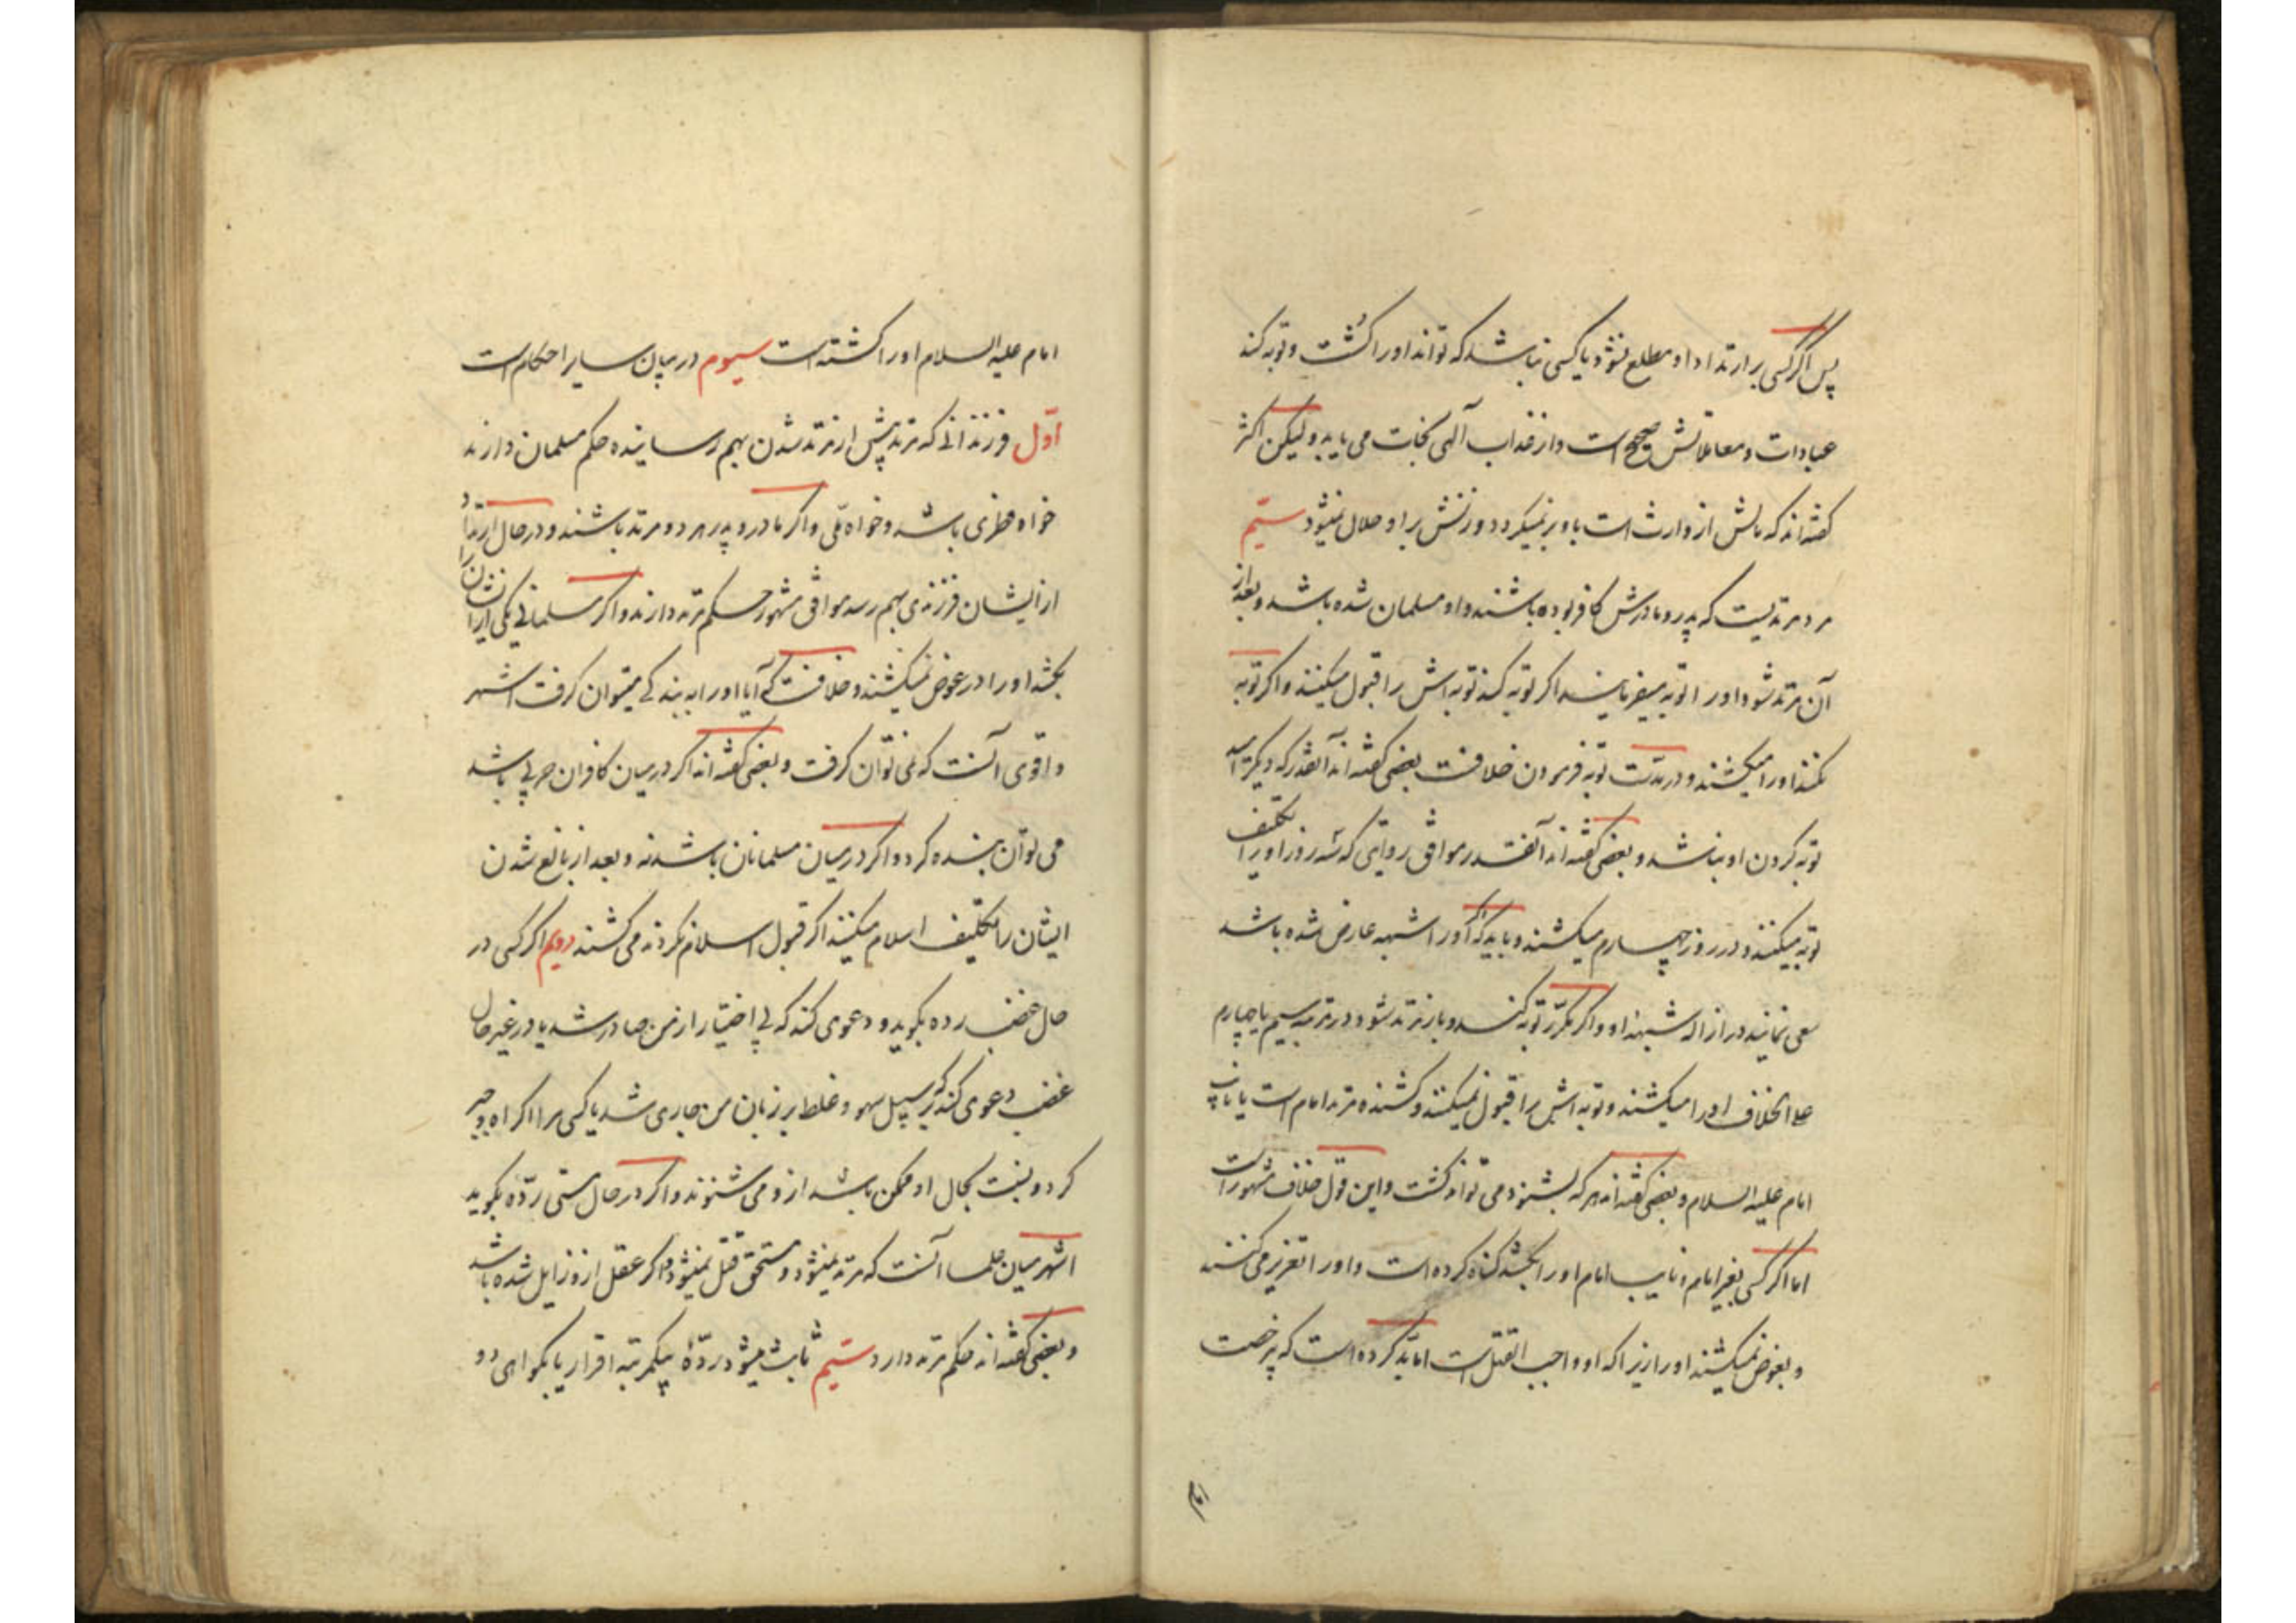 پس اگر کسی بر ارتداد او مطلع نشود یا کسی نباشد که تواند او را کُشت و توبه کند
عبادات و معاملاتش صحیح است و از عذاب الهی نجات می یابد و لیکن اکثر
گفته اند که مالش از وارث است باو برنمیگردد و زنش بر او حلال نمیشود سیّم
مرد مرتدیست که پدر و مادرش کافر بوده باشند و او مسلمان شده باشد و بعد از
آن مرتد شود او را توبه میفرمایند اگر توبه کند توبه اش را قبول میکنند و اگر توبه
نکند او را میکشند و در مدّت توبه فرمودن خلافست بعضی گفته اند آنقدر که دیگر امید
توبه کردن او نباشد و بعضی گفته اند آنقدر موافق روایتی که سه روز او را تکلیف
توبه میکنند و در روز چهارم میکشند و باید که اگر او را شبهه عارض شده باشد
سعی نمایند در ازاله شبهه او و اگر مکرّر توبه کند و باز مرتد شود در مرتبه سیم یا چهارم
علی الخلاف او را میکشند و توبه اش را قبول نمیکنند و کشنده مرتد امام است یا نایب
امام علیه السلام و بعضی گفته اند هر که بشنود می تواند کشت و این قول خلاف مشهور است
اما اگر کسی بغیر امام و نایب امام او را بکشد گناه کرده است و او را تعزیر می کنند
و بعوض نمیکشند او را زیرا که او واجب القتل است اما بد کرده است که بی رخصت
امام
امام علیه السلام او را کشته است سیوم در بیان سایر احکام است
اوّل فرزندانی که مرتد پیش از مرتد شدن بهم رسانیده حکم مسلمان دارند
خواه فطری باشد و خواه ملّی و اگر مادر و پدر هر دو مرتد باشند و در حال ارتداد
از ایشان فرزندی بهم رسد موافق مشهور حکم مرتد دارند و اگر مسلمانی یکی از ایشان را
بکشد او را در عوض نمیکشند و خلافست که آیا او را به بندگی میتوان گرفت اشهر
و اقوی آنست که نمی توان گرفت و بعضی گفته اند اگر در میان کافران حربی باشد
می توان بنده کرد و اگر در میان مسلمانان باشد نه و بعد از بالغ شدن
ایشان را تکلیف اسلام میکنند اگر قبول اسلام نکردند می کشند دویم اگر کسی در
حال غضب رده بگوید و دعوی کند که بی اختیار از من صادر شد یا در غیر حال
غضب دعوی کند که بر سبیل سهو و غلط بر زبان من جاری شد یا کسی مرا اکراه و جبر
کرد و نسبت بحال او ممکن باشد ازو می شنوند و اگر در حال مستی ردّه بگوید
اشهر میان علما آنست که مرتد نمیشود و مستحق قتل نمیشود و اگر عقل ازو زایل شده باشد
و بعضی گفته اند حکم مرتد دارد سیّم ثابت میشود ردّهٔ بیکمرتبه اقرار یا بگواهی دو